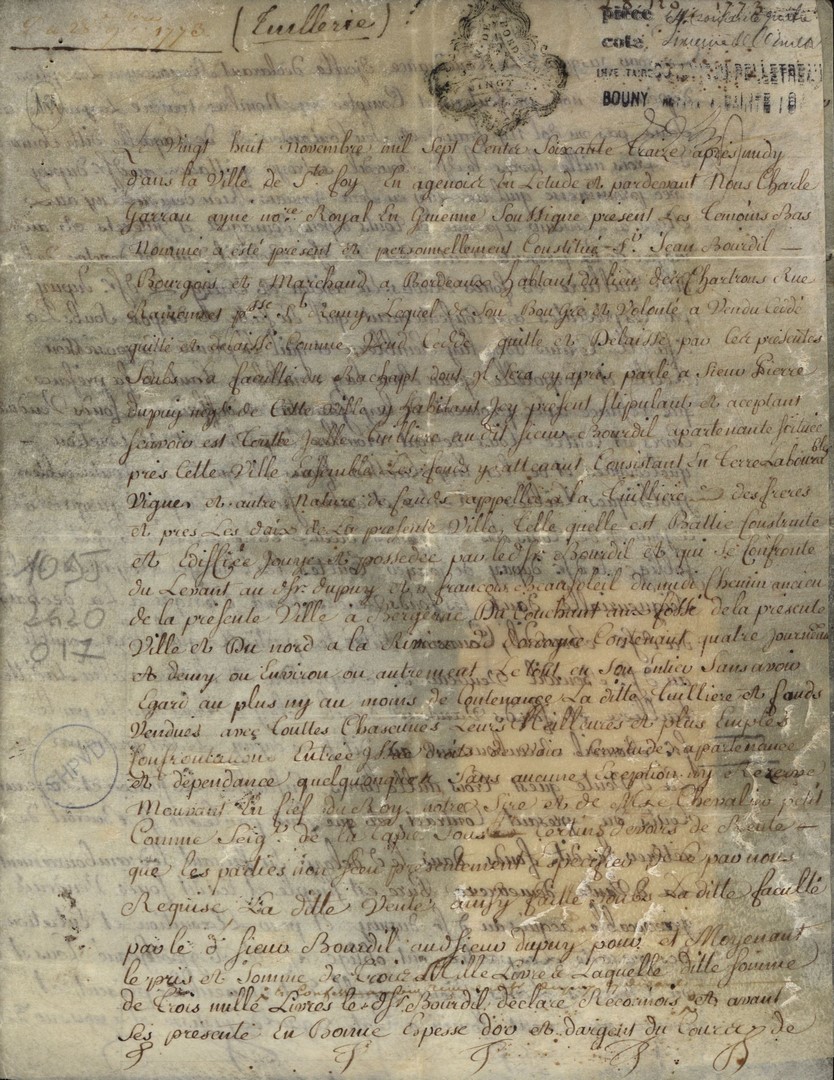 1773 (Tuillerie)
pièce
cote
INVENTAIRE
BOUNY
Le vingt huit novembre mil sept Cents Soixante traize apres midy
dans la Ville de Ste foy En agenois En Letude et pardevant Nous Charle
Garrau ayné nore Royal En Guienne Soussigné présent Les Temoins Bas
Nommés a esté présent et personnellement Constitué Sr Jean Bourdil
Bourgois et Marchand a Bordeaux habitant du lieu des Chartrons Rue
psse St Remy, Lequel de Son Bon Gré et Volonté a Vendu Cédé
quitté et délaissé Comme Vend Cedde quitte et Délaisse par les presentes
Soubs la faculté du Rachapt dont il Sera cy après parlé a Sieur Pierre
dupuy negt de Cette ville y habitant Icy présent stipulant et aceptant
scavoir est Toutte Icelle tuillière audit sieur Bourdil apartenante située
près Cette Ville Ensemble Les fonds y attenant Consistant En Terre Labourable
Vignes et autre Nature de fonds appellée a la Tuilliere des freres
et pres Les de La présente Ville, Telle quelle est Battie Construite
et Ediffiée Jouye et possedée par led Sr Bourdil et qui Se Confronte
du Levant au dSr dupuy et a francois Beausoleil du midi Chemin ancien
de la présente Ville a Bergerac Du Couchant fossé de la présente
Ville et Du nord a la Riviere Dordogne Contenant quatre Journaux
et demy ou Environ ou autrement Le tout en Son Entier Sans avoir
Egard au plus ny au moins de Contenance La ditte Tuilliere et fonds
Vendues avec Touttes Chascunes Leurs Meilleures et plus Emples
Confrontations Entrée Issue droits devoirs Servitudes apartenance
et dépendance quelquonques Sans aucune Exeption ny Reserve
Mouvant En fief du Roy notre Sire et de Mre Chevalier petit
Comme Seigr de la Sous Certains devoirs de Rente
que les parties non peu présentement Spécifier de ce par nous
Requise, La ditte Vente ainsy faitte soubs La ditte faculté
par le d Sieur Bourdil aud Sieur dupuy pour et Moyenant
le pris et Somme de Trois Mille Livres Laquelle ditte Somme
de Trois mille Livres le dSr Bourdil déclare Reconnois avant
Ses présente En Bonne Espesse d'or et d'argent du Cours de
1055
2620
017
SHPVD